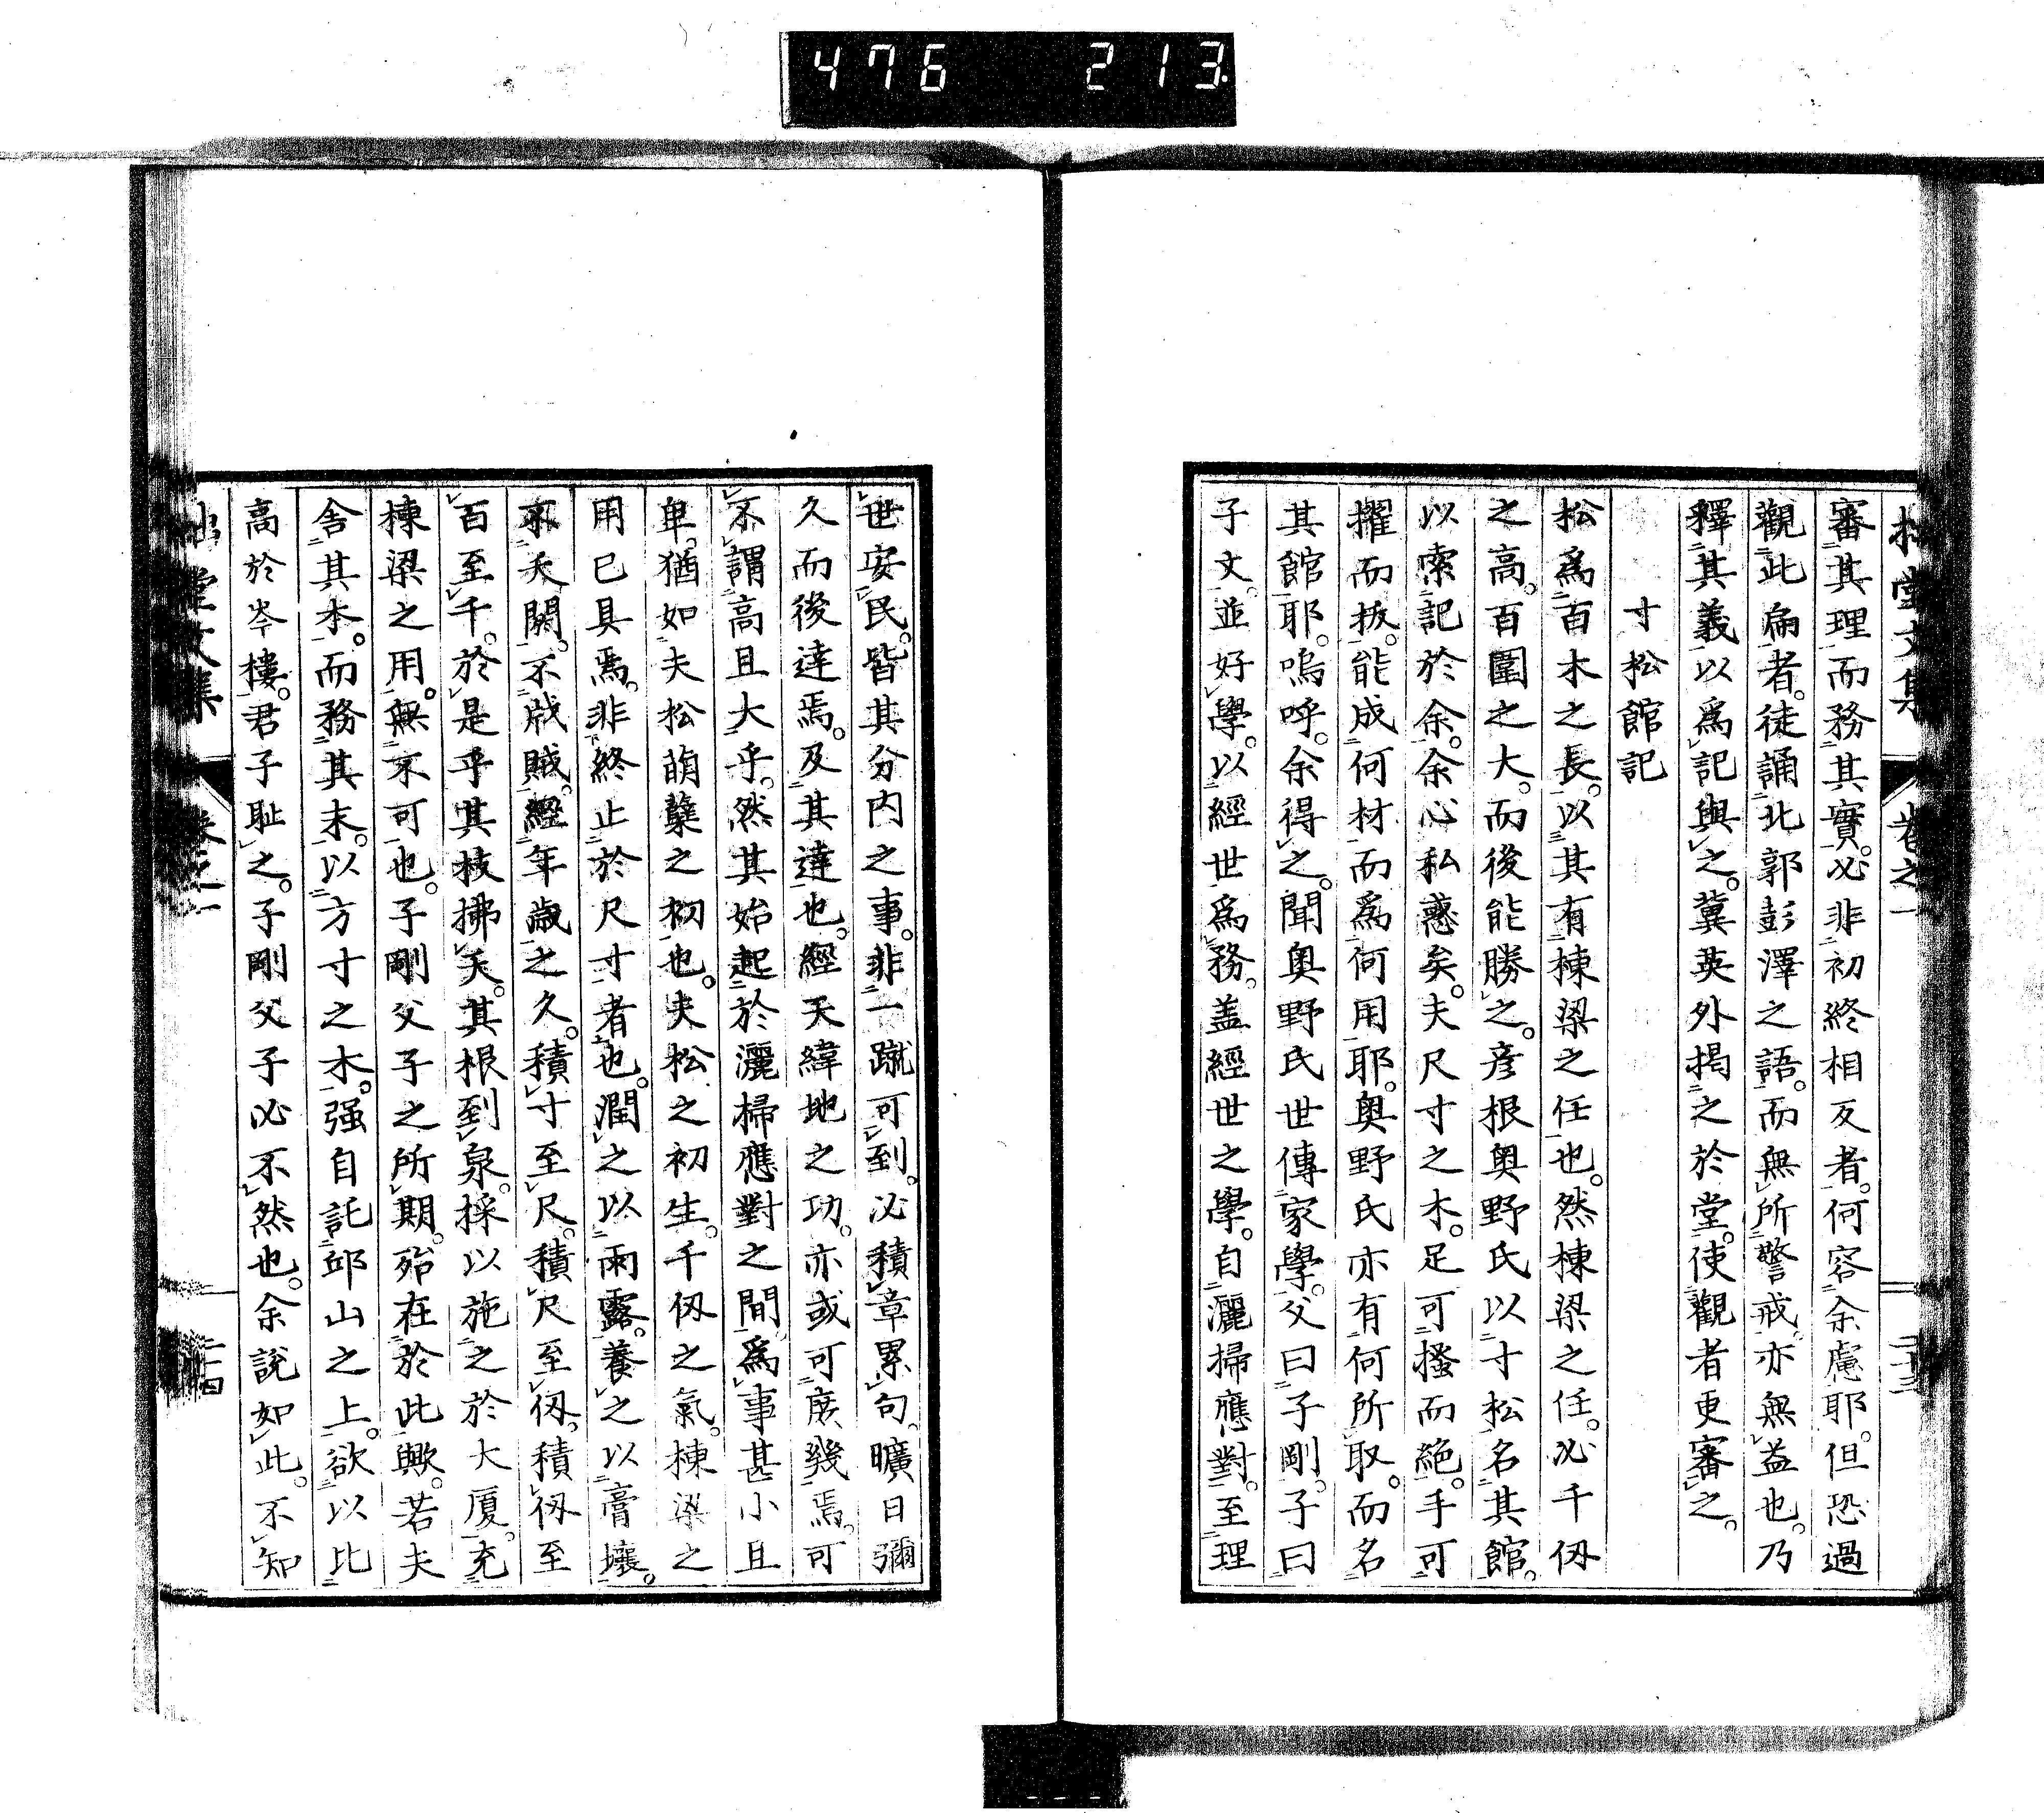 476 213
拙堂文集 卷之一 二十三
審其理而務其實。必非初終相反者。何容余慮耶。但恐過
觀此扁者。徒誦北郭彭澤之語。而無所警戒。亦無益也。乃
釋其義以爲記與之。冀英外揭之於堂。使觀者更審之。
寸松館記
松爲百木之長。以其有棟梁之任也。然棟梁之任。必千仭
之高。百圍之大。而後能勝之。彦根奥野氏以寸松名其館。
以索記於余。余心私惑矣。夫尺寸之木。足可搔而絶。手可
擢而抜。能成何材而爲何用耶。奥野氏亦有何所取。而名
其館耶。嗚呼。余得之。聞奥野氏世傳家學。父曰子剛。子曰
子文。並好學。以經世爲務。盖經世之學。自灑掃應對。至理
世安民。皆其分内之事。非一蹴可到。必積章累句。曠日彌
久而後達焉。及其達也。經天緯地之功。亦或可庶幾焉。可
不謂高且大乎。然其始起於灑掃應對之間。爲事甚小且
卑。猶如夫松萌蘖之初也。夫松之初生。千仭之氣。棟梁之
用已具焉。非終止於尺寸者也。潤之以雨露。養之以膏壤。
不夭閼。不戕賊。經年歲之久。積寸至尺。積尺至仭。積仭至
百至千。於是乎其枝拂天。其根到泉。採以施之於大厦。充
棟梁之用。無不可也。子剛父子之所期。殆在於此歟。若夫
舎其本。而務其末。以方寸之木。强自託邱山之上。欲以比
高於岑樓。君子恥之。子剛父子必不然也。余說如此。不知
拙堂文集 卷之一 二十四